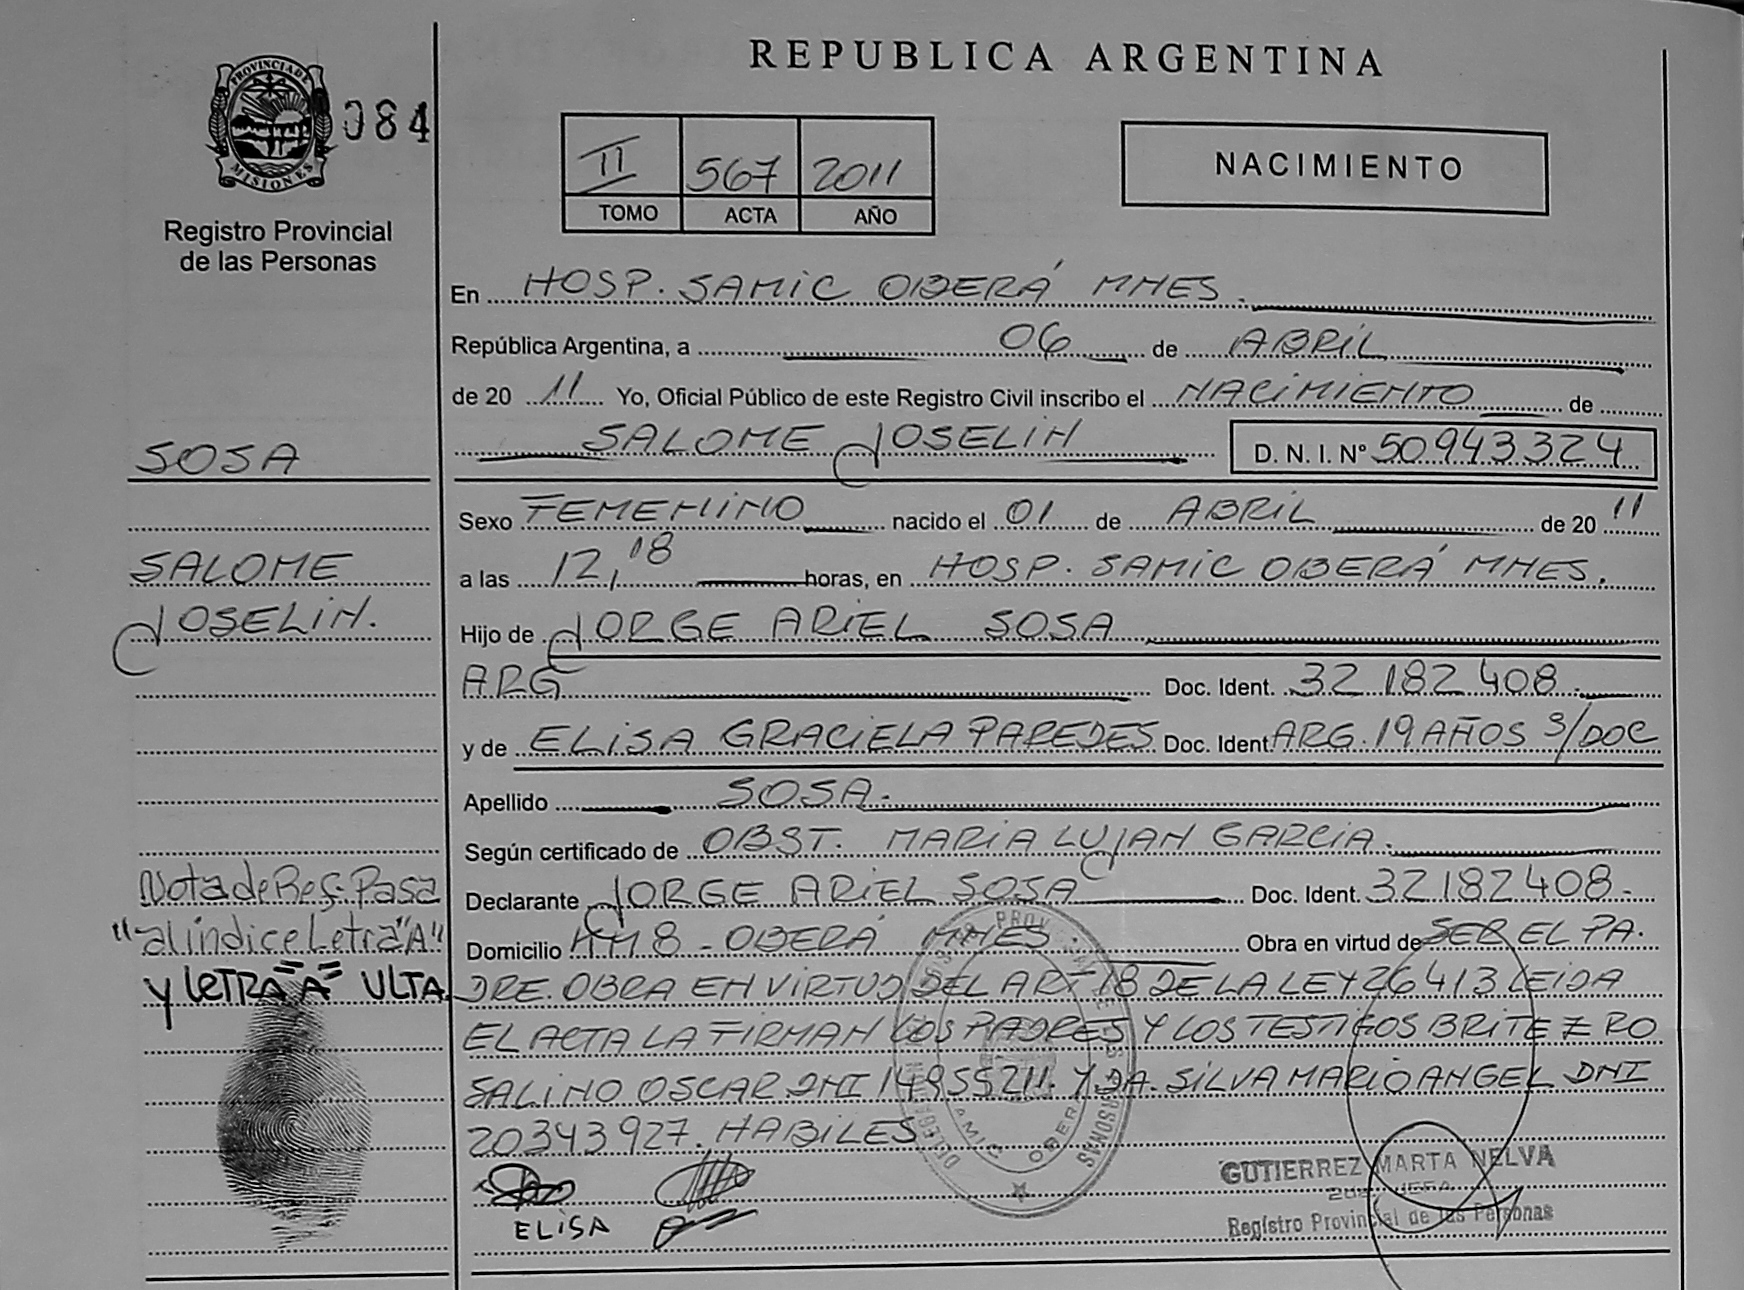 REPUBLICA ARGENTINA
PROVINCIA DE MISIONES
084
Registro Provincial
de las Personas
II 567 2011
TOMO ACTA AÑO
NACIMIENTO
En HOSP. SAMIC OBERÁ MNES.
República Argentina, a 06 de ABRIL
de 20 11 Yo, Oficial Público de este Registro Civil inscribo el NACIMIENTO de
SALOME JOSELIN D. N. I. Nº 50943324
SOSA
SALOME
JOSELIN.
Sexo FEMENINO nacido el 01 de ABRIL de 20 11
a las 12,18 horas, en HOSP. SAMIC OBERÁ MNES.
Hijo de JORGE ARIEL SOSA
ARG Doc. Ident. 32 182 408.
y de ELISA GRACIELA PAREDES Doc. Ident ARG. 19 AÑOS S/DOC
Apellido SOSA.
Según certificado de OBST. MARIA LUJAN GARCIA.
Declarante JORGE ARIEL SOSA Doc. Ident. 32182408.
Domicilio KM 8 - OBERÁ MNES. Obra en virtud de SER EL PA.
DRE. OBRA EN VIRTUD DEL ART 18 DE LA LEY 26413 LEIDA
EL ACTA LA FIRMAN LOS PADRES Y LOS TESTIGOS BRITEZ RO
SALINO OSCAR DNI 14955211. Y DA. SILVA MARIO ANGEL DNI
20343927. HABILES
Nota de Ref: Pasa
"al indice Letra "A"
y LETRA "A" ULTA.
ELISA
GUTIERREZ MARTA NELVA
Registro Provincial de las Personas